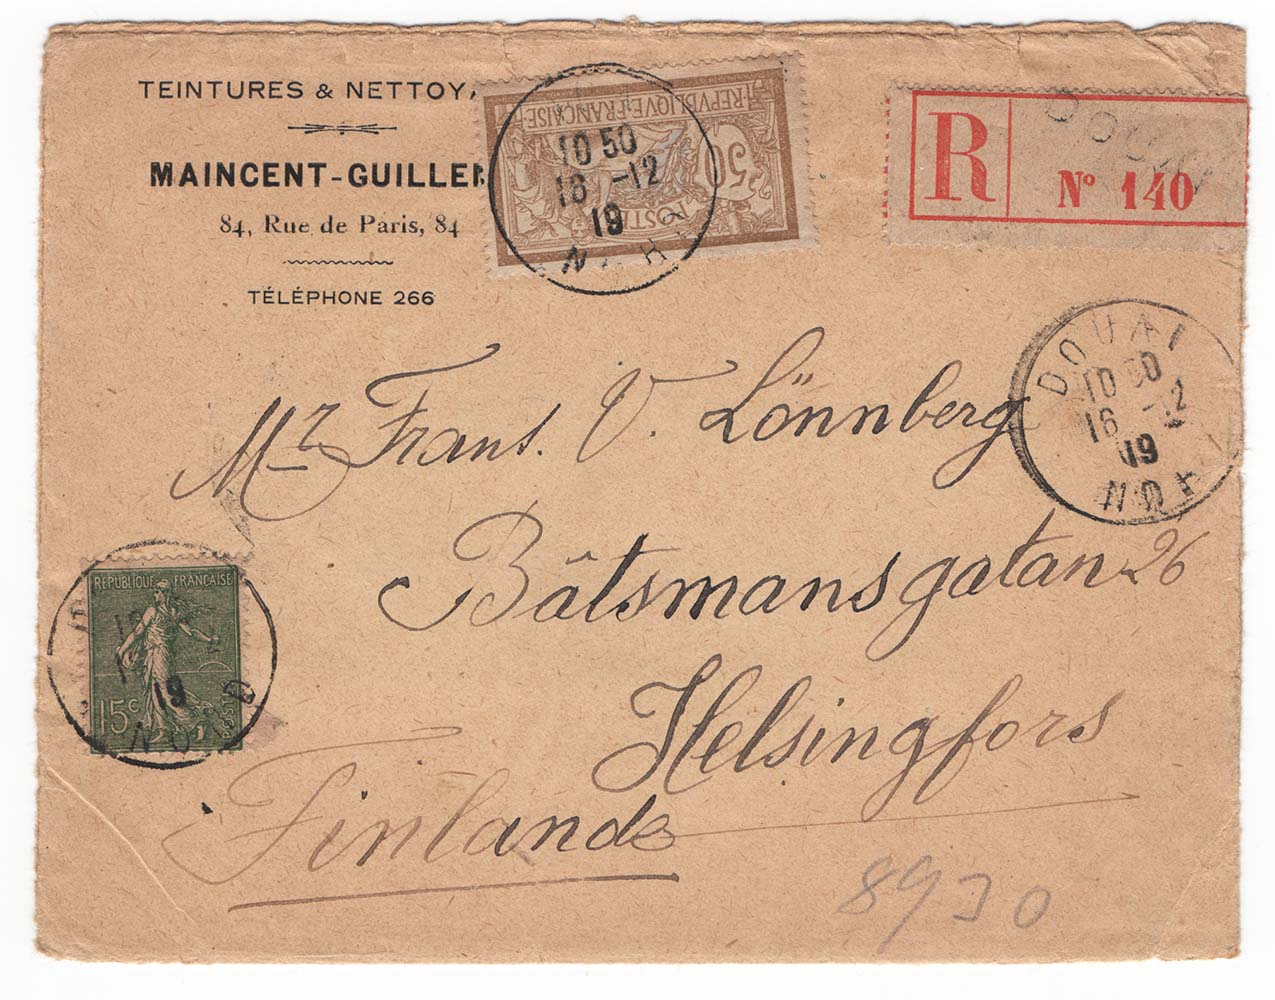 TEINTURES & NETTOY
MAINCENT-GUILLE
84, Rue de Paris, 84
TÉLÉPHONE 266
REPVBLIQVE FRANÇAISE
50
POSTE
10 50
16 -12
19
R
DOUAI
Nº 140
DOUAI
10 50
16 -12
19
NORD
Mr Frans. V. Lönnberg
Båtsmansgatan 26
Helsingfors
Finlande
REPUBLIQUE FRANÇAISE
15c
POSTES
19
NORD
8930